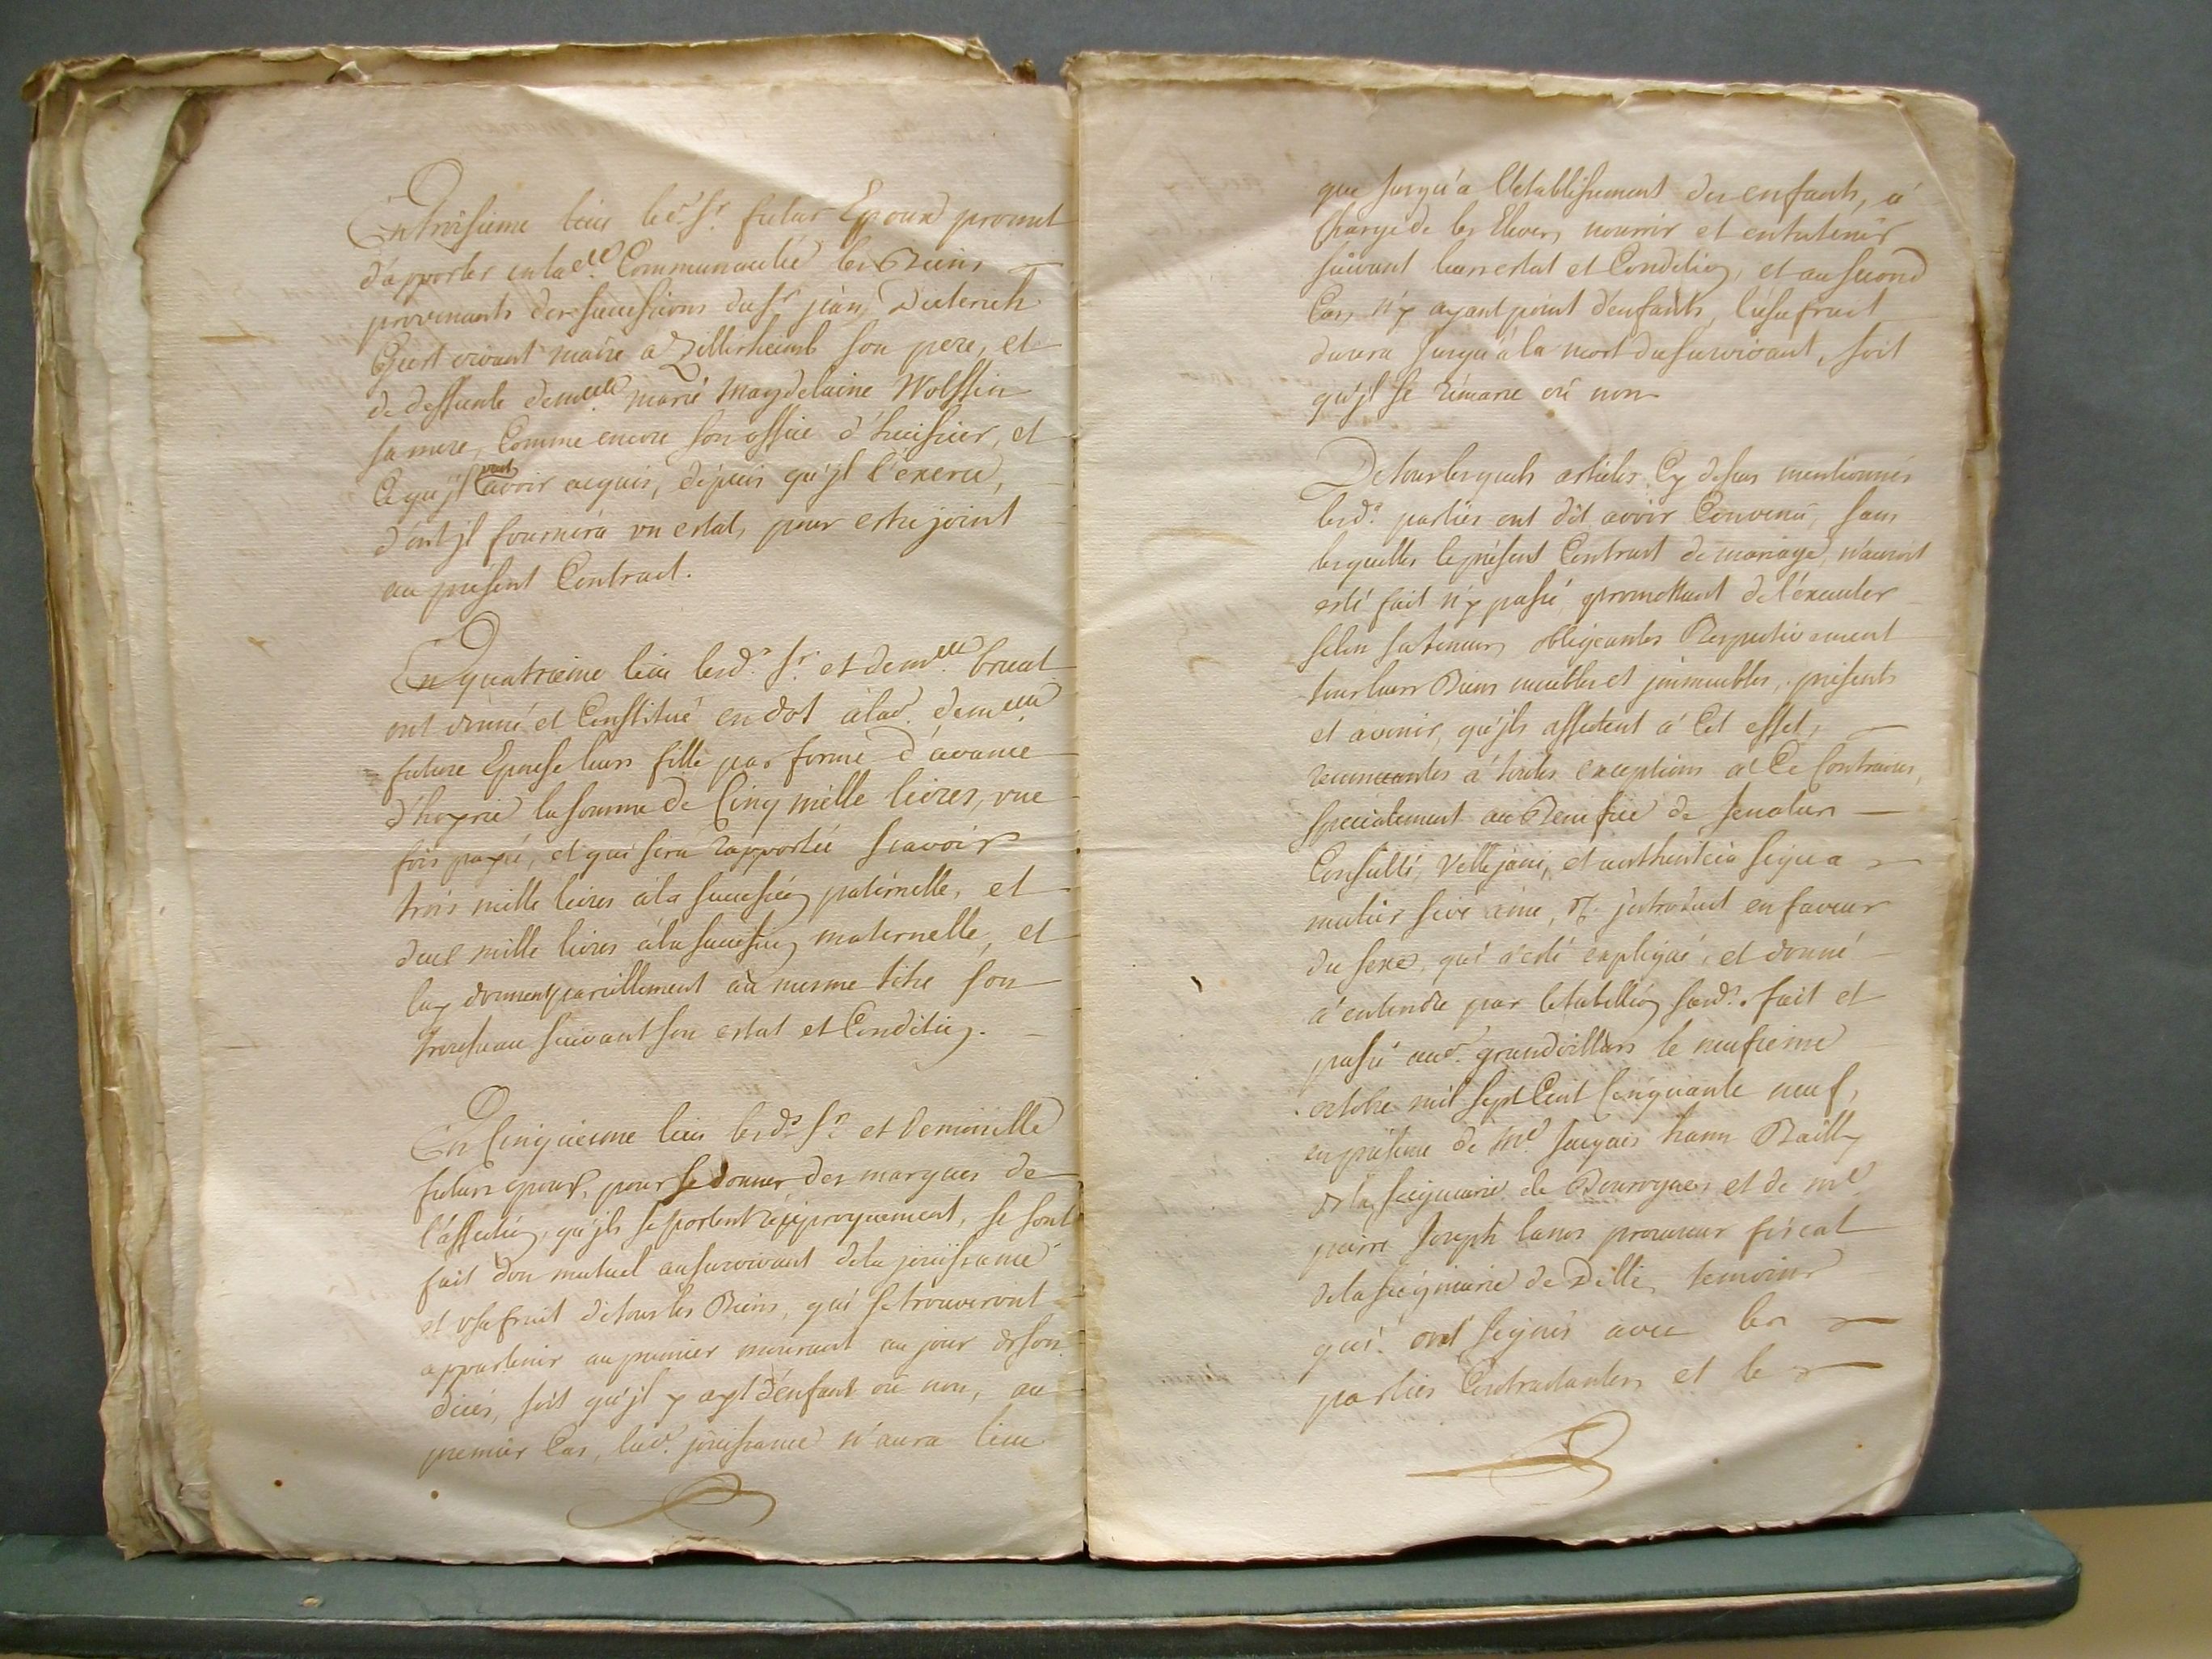 En troisieme lieu led.^t S^r. futur Epoux promet
d'apporter en lad.^te Communauté les Biens
provenants des successions du S^r jean Dieterich
Quert vivant maire a Zillisheimb son pere, et
de deffunte dem^elle marie Magdelaine Wolffin
sa mere, Comme encore son office d'huissier, et
Ce qu'jl peut avoir acquis, depuis qu'jl l'exerce,
dont jl fournira un estat, pour estre joint
au présent Contract.
En quatrieme lieu lesd.^s S^r. et dem^elle bruat
ont donné et Constitué en dot à lad. dem^elle
future Epouse leurs fille par forme d'avance
d'hoyrie la somme de Cinq mille livres, une
fois payée, et qui sera rapportée scavoir
trois mille livres à la succession paternelle, et
deux mille livres à la succession maternelle, et
luy donnent pareillement au mesme titre son
trousseau suivant son estat et Condition.
En Cinquieme lieu lesd.^s S^r. et Demoiselle
futurs epoux, pour se donner des marques de
l'affection, qu'jls se portent réciproquement, se sont
fait don mutuel au survivant de la jouissance
et usufruit de tous les Biens, qui se trouveront
appartenir au premier mourant au jour de son
décés, soit qu'jl y ayt d'enfant ou non, au
premier Cas, lad. jouissance n'aura lieu
que jusqu'a l'etablissement des enfants, a
Charge de les Elever, nourrir et entretenir
suivant leurs estat et Condition, et au second
Cas, n'y ayant point d'enfants, l'usufruit
durera jusqu'à la mort du survivant, soit
qu'jl se rémarie ou non.
De tous lesquels articles Cy dessus mentionnés
lesd.^s parties ont dit avoir Convenu, sans
lesquelles le présent Contract de mariage n'auroit
esté fait n'y passé, promettant de l'éxecuter
selon sa teneur, obligeantes Respectivement
tous leurs Biens meubles et jmmeubles, présents
et avenir, qu'jls affectent a Cet effet,
renonceantes a toutes exceptions a Ce Contraires,
specialement au Benefice de senatus
Consulti, Vellejani, et authentica si qua
mulier sive a me, &. jntroduit en faveur
du sexe, qui a esté expliqué, et donné
a entendre par le tabellion sousd.^t fait et
passé aud. grandvillars le neufieme
octobre mil sept Cent Cinquante neuf,
en présence de M^e. jacques hann Bailly
de la seigneurie de Bourogne, et de m^e.
pierre Joseph lanos procureur fiscal
de la seigneurie de Delle, temoins
qui ont signés avec les
parties Contractantes, et le